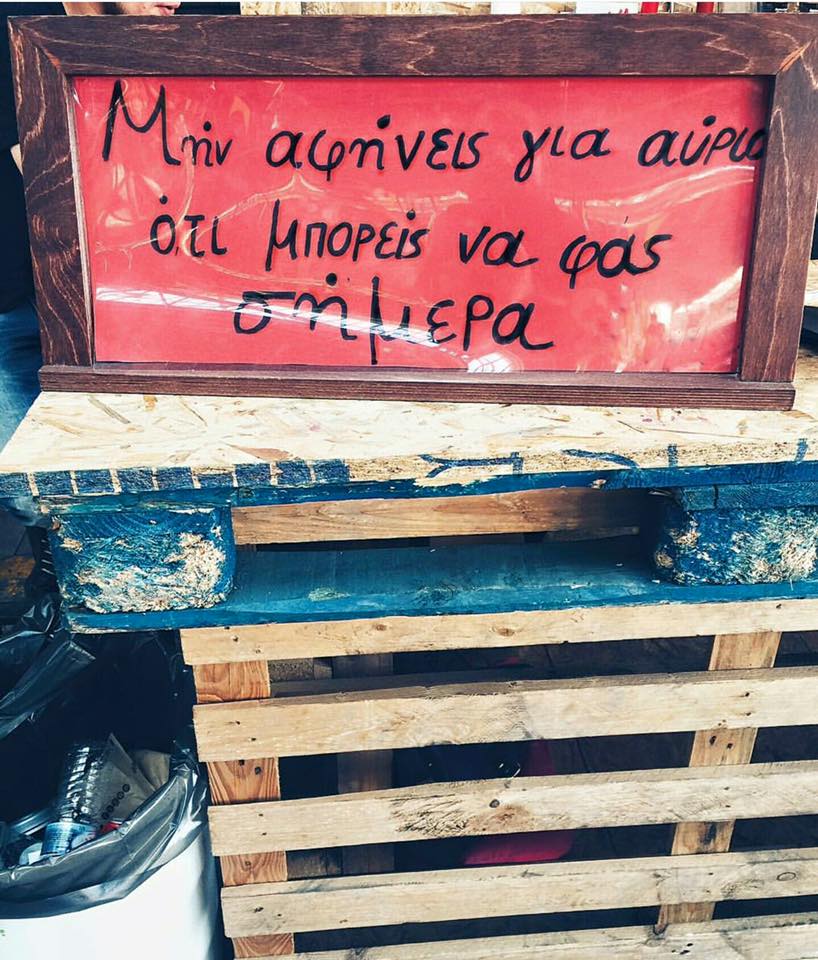 Μην αφήνεις για αύριο
ότι μπορείς να φάς
σήμερα